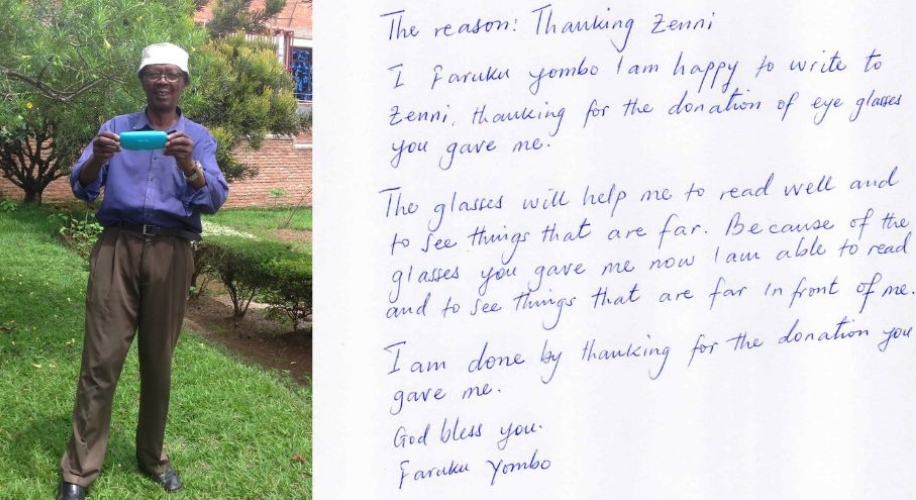 The reason: Thanking Zenni
I Faruku yombo I am happy to write to
Zenni, thanking for the donation of eye glasses
you gave me.
The glasses will help me to read well and
to see things that are far. Because of the
glasses you gave me now I am able to read
and to see things that are far in front of me.
I am done by thanking for the donation you
gave me.
God bless you.
Faruku Yombo